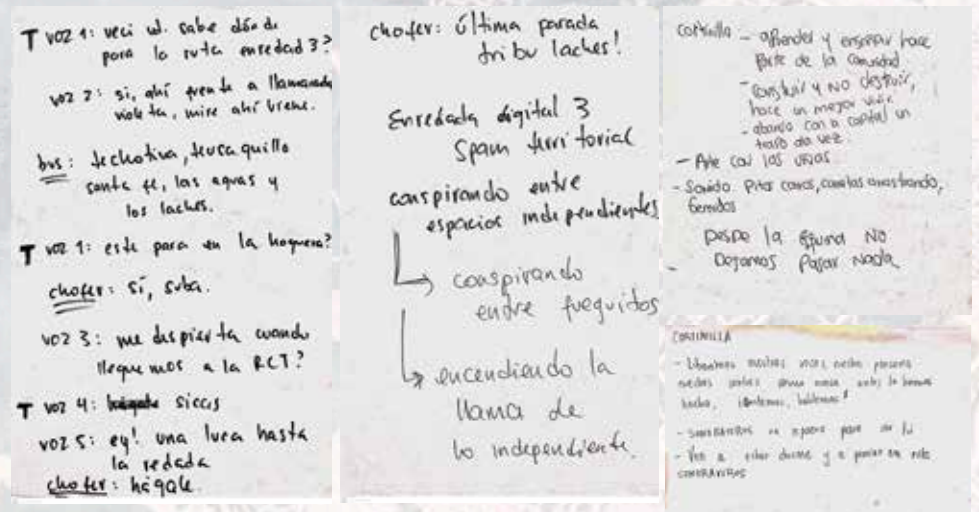 T voz 1: veci ud. sabe dónde
para la ruta enredad 3?
voz 2: si, ahí frente a llamarada
violeta, mire ahí viene.
bus: techotiva, teusaquillo
santa fe, las aguas y
los laches.
T voz 1: este para en la hoguera?
chofer: sí, suba.
voz 3: me despierta cuando
lleguemos a la RCT?
T voz 4: siccis
voz 5: ey! una luca hasta
la redada
chofer: hágale.
chofer: última parada
tribu laches!
Enredada digital 3
Spam territorial
conspirando entre
espacios independientes
conspirando
entre fueguitos
encendiendo la
llama de
lo independiente.
cortinilla - aprender y enseñar hace
parte de la comunidad.
- construir y NO destruir,
hace un mejor vivir
- abando con a capital un
trazo a la vez.
- Arte con las uñas
- Sonido. Pitar carros, arrastrando,
Gemidos
DESDE LA NO
DEJAMOS PASAR NADA
-
CORTINILLA
- voces,
hecho, hablemos!
- es espacio para
- Ven a y a en este